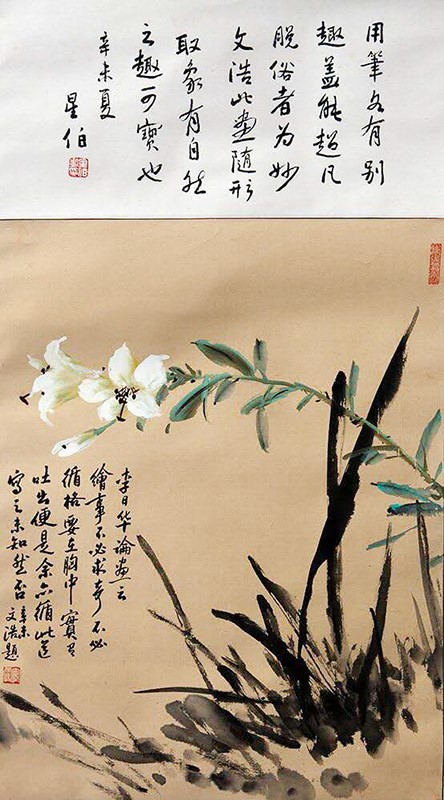 用筆各有别
趣蓋能超凡
脱俗者為妙
文浩此畫随形
取象有自然
之趣可寶也
辛未夏
星伯
李日华論畫云
繪事不必求奇不必
循格要在胸中實有
吐出便是余亦循此道
寫之未知然否 辛未
文浩題